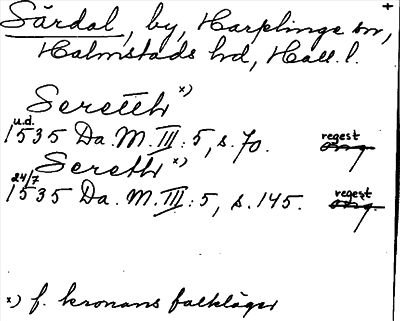 +
Särdal, by, Harplinge sn,
Halmstads hd, Hall. l.
Seretth x)
u.d.
1535 Da. M. III: 5, s. 70. regest org.
Sereth x)
24/7
1535 Da. M. III: 5, s. 145. regest org.
x) f. kronans falkläger